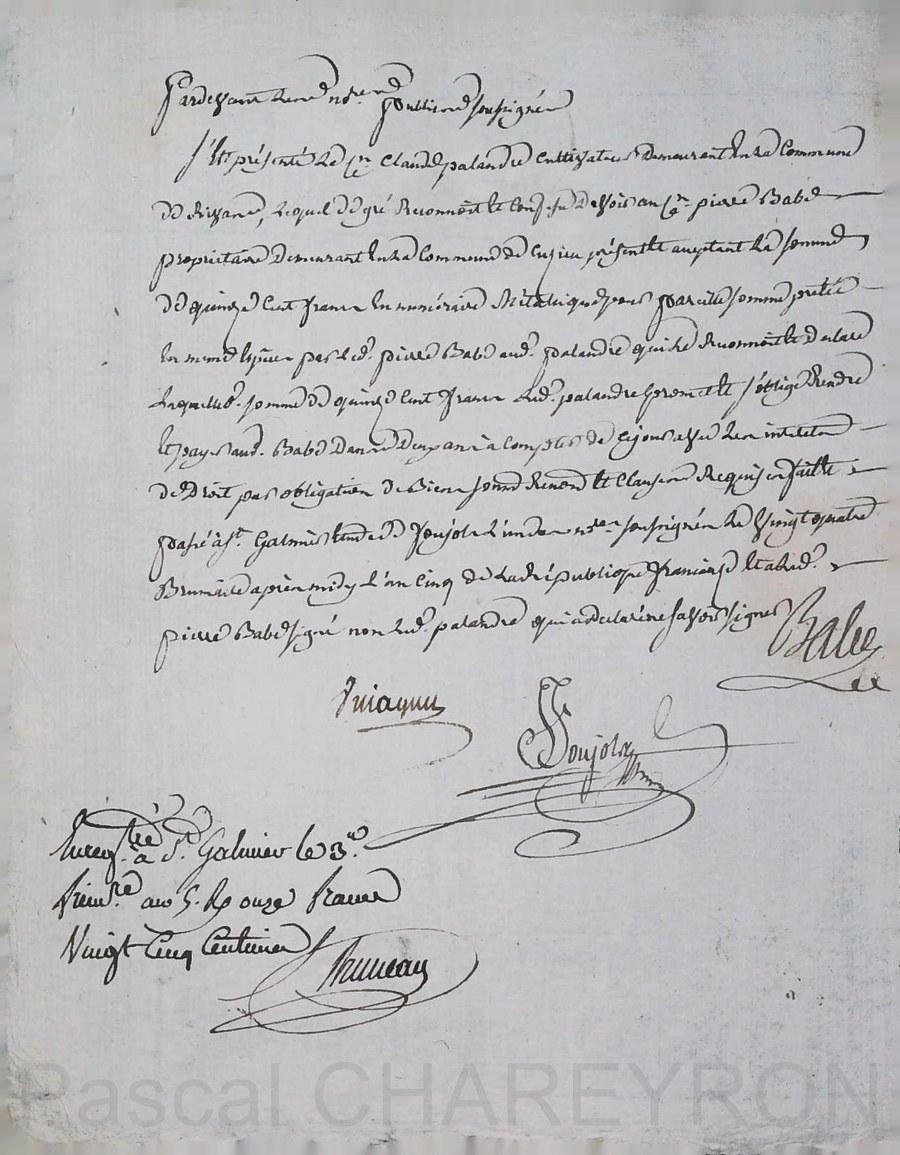 Pardevant Le no.re
publicq soussigné
S'est présenté Le c.en Claude palandre Cultivateur Demeurant En La Commune
De Rivas, Lequel De gré Reconnoit et Confesse Devoir au c.en pierre Babe
propriétaire Demeurant En La Commune De Cuzieu présent et acceptant La somme
De quinze Cent francs En numéraire Métalique pour pareille somme prêtée
En même Espèce par led. pierre Babe aud. palandre qui Le Reconnoit et Declare
Laquelle somme De quinze Cent francs Led. palandre promet et s'oblige Rendre
et payer aud. Babe Dans Deux ans à Compter de Ce jour avec Les interets
De Droit par obligation De Biens Clauses Requises faitte
passé à St. Galmier Etude De Joujols L'un des no.res soussignés Le Vingt quatre
Brumaire après midy L'an Cinq De La République française et a Led.
pierre Babe signé non Led. palandre qui a declaré ne savoir signer
Babe
Joujols
Enreg.tré à St. Galmier le 3.
frim.re an 5. R onze francs
Vingt Cinq Centimes
Bruneau
Pascal CHAREYRON